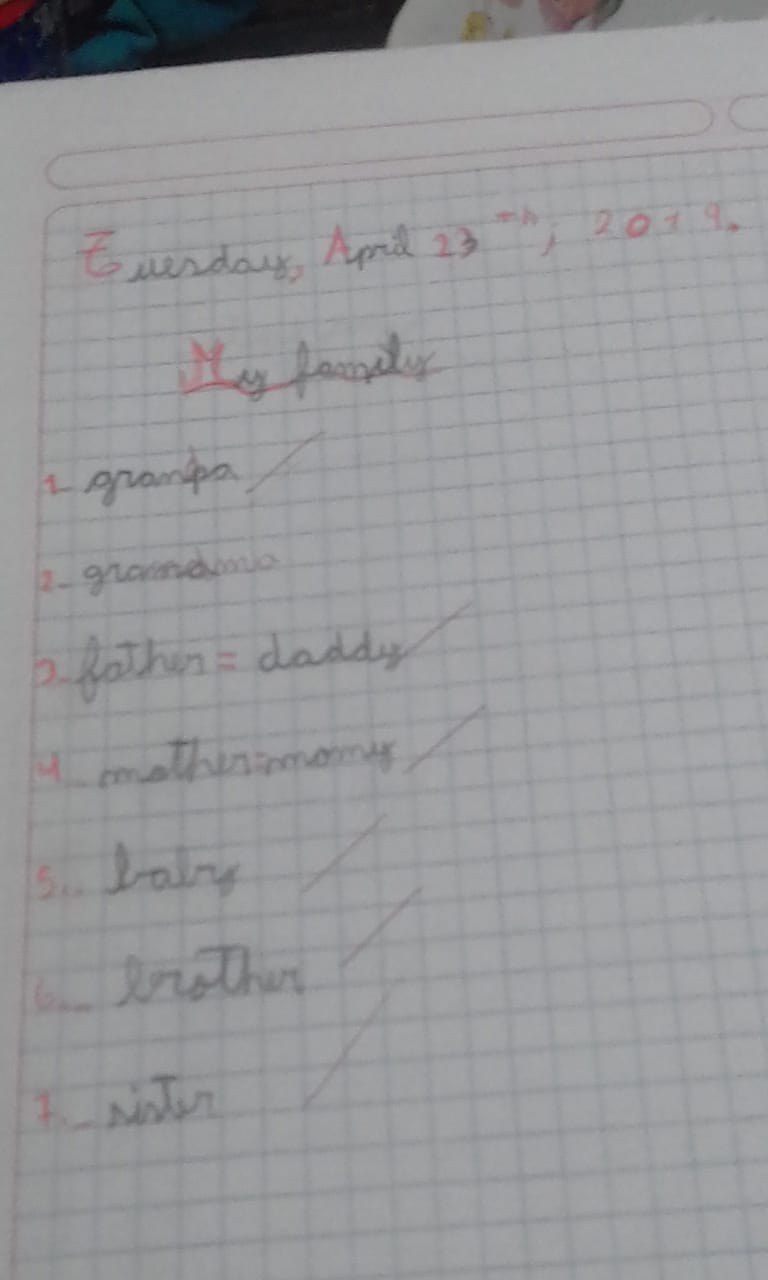 Tuesday, April 23th, 2019.
My family
1- grampa
2- grandma
3- father = daddy
4- mother=momy
5.- baby
6.- brother
7.- sister